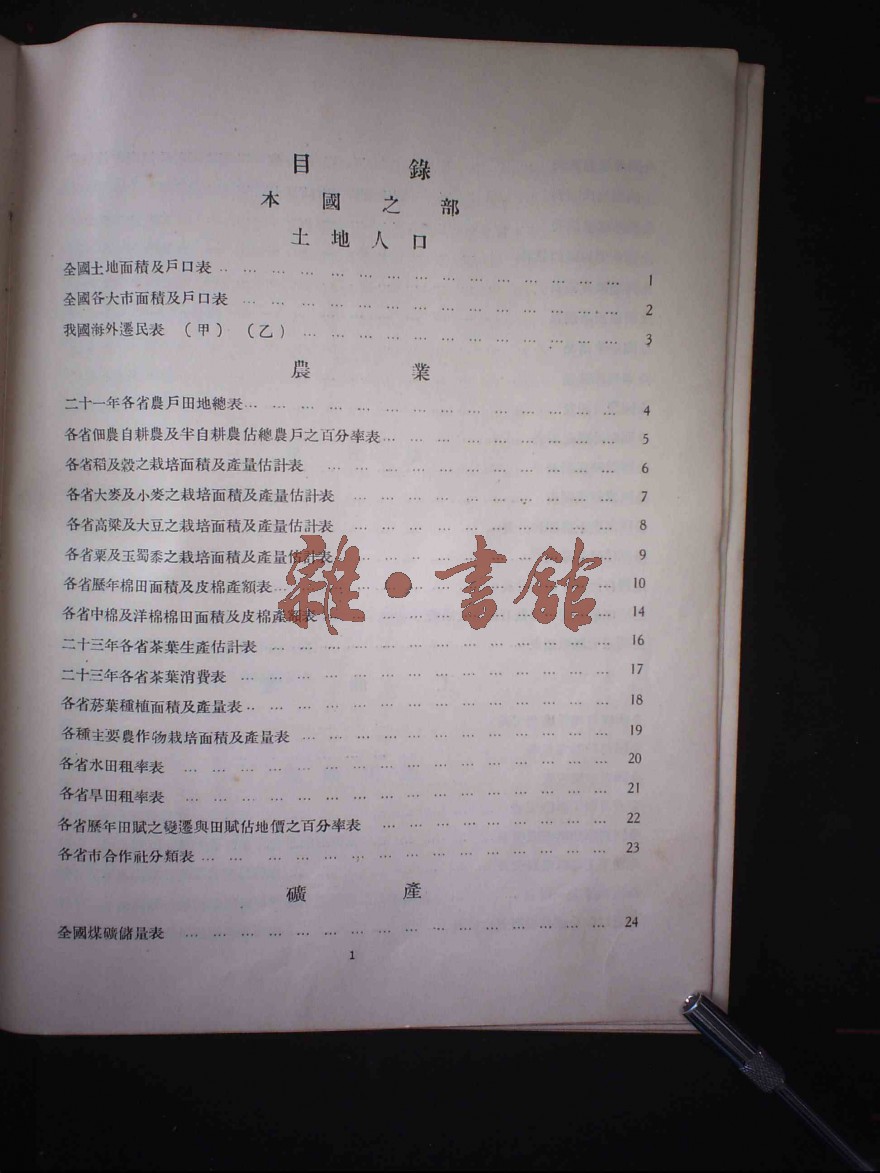 目錄
本國之部
土地人口
全國土地面積及戶口表 … 1
全國各大市面積及戶口表 … 2
我國海外遷民表 （甲） （乙） … 3
農業
二十一年各省農戶田地總表 … 4
各省佃農自耕農及半自耕農佔總農戶之百分率表 … 5
各省稻及穀之栽培面積及產量估計表 … 6
各省大麥及小麥之栽培面積及產量估計表 … 7
各省高粱及大豆之栽培面積及產量估計表 … 8
各省粟及玉蜀黍之栽培面積及產量估計表 … 9
各省歷年棉田面積及皮棉產額表 … 10
各省中棉及洋棉棉田面積及皮棉產額表 … 14
二十三年各省茶葉生產估計表 … 16
二十三年各省茶葉消費表 … 17
各省菸葉種植面積及產量表 … 18
各種主要農作物栽培面積及產量表 … 19
各省水田租率表 … 20
各省旱田租率表 … 21
各省歷年田賦之變遷與田賦佔地價之百分率表 … 22
各省市合作社分類表 … 23
礦產
全國煤礦儲量表 … 24
1
雜·書館